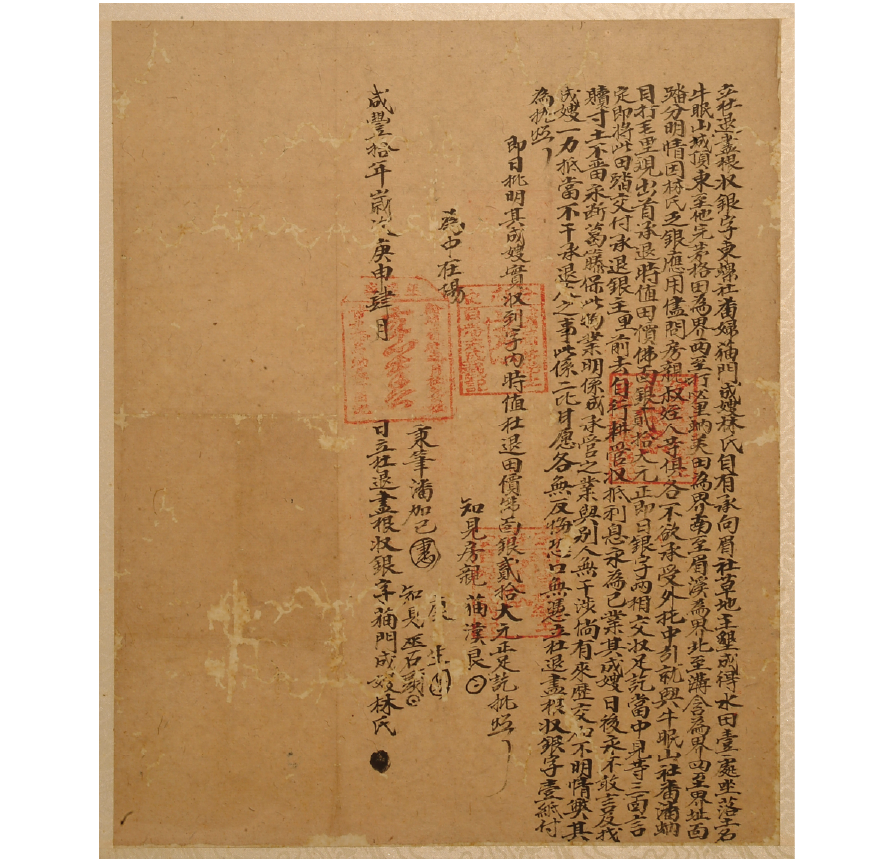 立杜退盡根收銀字東螺社番婦蒲門成嫂林氏自有承向眉社草地主墾成得水田壹處坐落土名
牛眠山城頂東至他完茅格田為界西至打必里蚋美田為界南至眉溪為界北至溝仝為界四至界址面
踏分明情因林氏乏銀應用儘問房親叔姪人等俱各不欲承受外托中引就與牛眠山社番潘蚋
目打毛里現出首承退時值田價佛面銀貳拾大元正即日銀字兩相交收足訖當中見等三面言
定即將此田踏交付承退銀主里前去自行耕管收抵利息永為己業其成嫂日後永不敢言及找
贖寸土不留永斷葛藤保此物業明係成承管之業與別人無干涉倘有來歷交加不明情與其
成嫂一力抵當不干承退人之事此係二比甘愿各無反悔恐口無憑立杜退盡根收銀字壹紙付
為執炤
即日批明其成嫂實收到字內時值杜退田價佛面銀貳拾大元正足訖批炤
為中在場
知見房親蒲漢艮
秉筆潘加己
知見巫石
咸豐拾年歲次庚申肆月 日立杜退盡根收銀字蒲門成嫂林氏